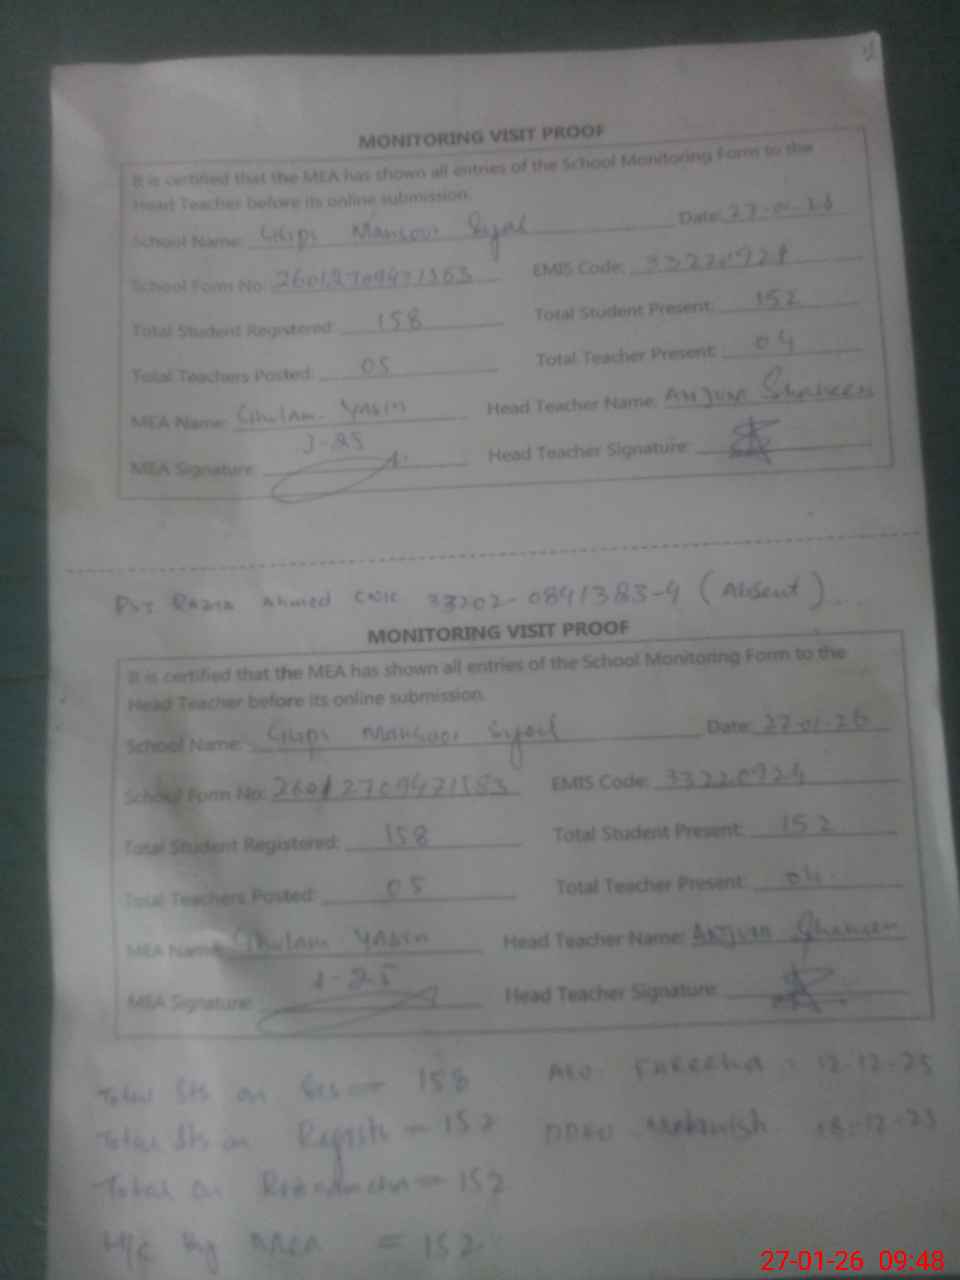 MONITORING VISIT PROOF
It is certified that the MEA has shown all entries of the School Monitoring Form to the
Head Teacher before its online submission.
School Name: GGPS Mansoor Syal Date: 27-01-26
School Form No: EMIS Code: 33220924
Total Student Registered: 158 Total Student Present: 152
Total Teachers Posted: 05 Total Teacher Present: 04
MEA Name: Ghulam Yasin Head Teacher Name: Anjum Shaheen
J-25
MEA Signature: Head Teacher Signature:
PST Razia Ahmed CNIC 33202-0841383-4 (Absent)
MONITORING VISIT PROOF
It is certified that the MEA has shown all entries of the School Monitoring Form to the
Head Teacher before its online submission.
School Name: GGPS Mansoor Syal Date: 27-01-26
School Form No: EMIS Code: 33220924
Total Student Registered: 158 Total Student Present: 152
Total Teachers Posted: 05 Total Teacher Present: 04
MEA Name: Ghulam Yasin Head Teacher Name: Anjum Shaheen
J-25
MEA Signature: Head Teacher Signature:
Total Sts on = 158 AEO 12-12-25
Total Sts on = 152 DDEO Mehwish
Total on = 152
H/C by MEA = 152
27-01-26 09:48